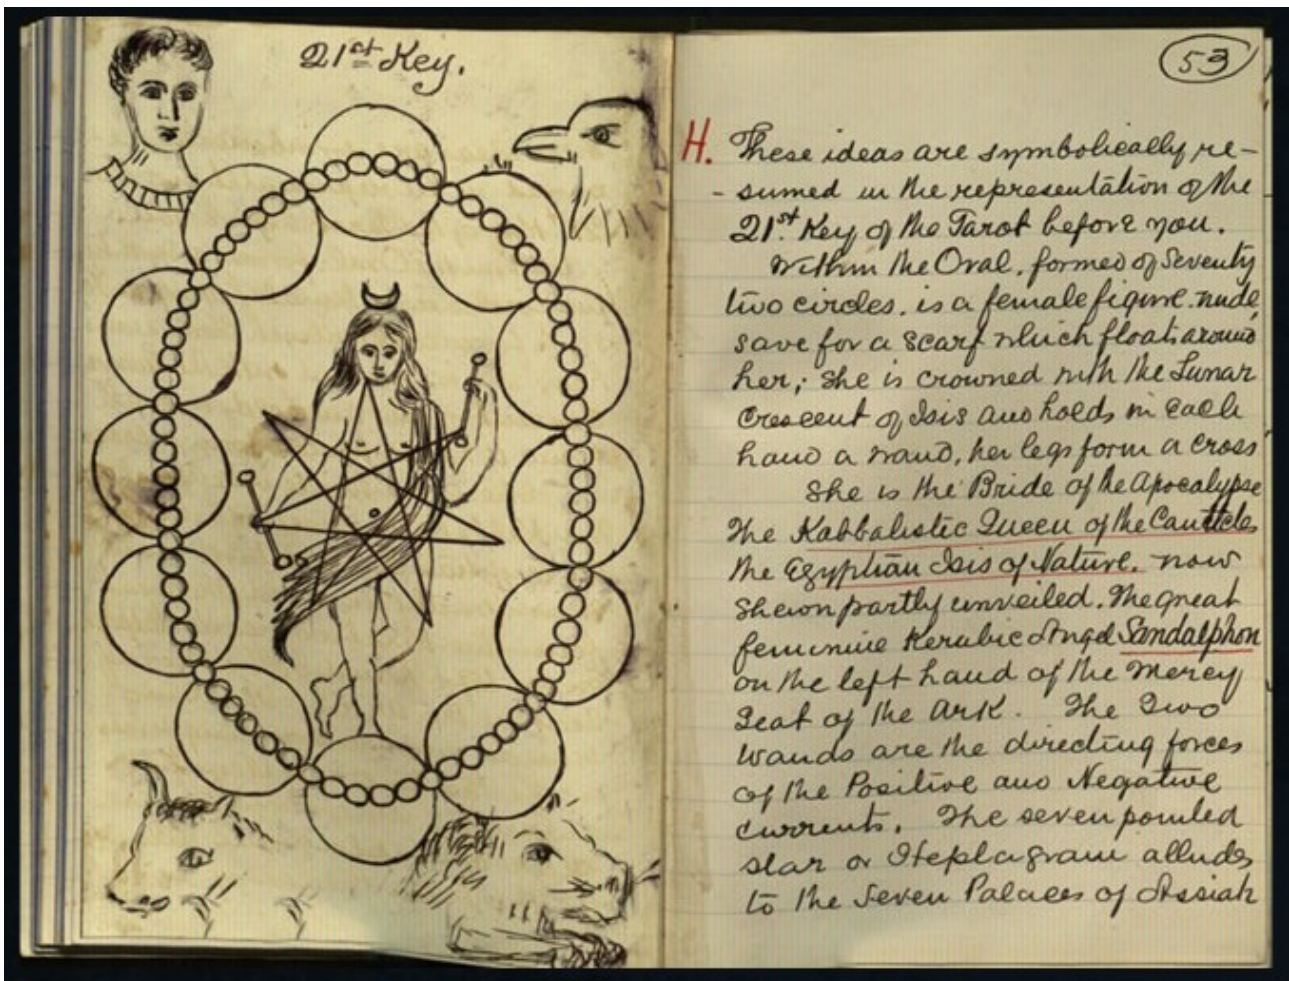 21st Key.
53
H. These ideas are symbolically re-
- sumed in the representation of the
21st Key of the Tarot before you.
Within the Oval, formed of Seventy
two circles, is a female figure, nude,
save for a scarf which floats around
her; She is crowned with the Lunar
Crescent of Isis and holds in each
hand a wand, her legs form a cross
She is the Bride of the Apocalypse
The Kabbalistic Queen of the Canticles
the Egyptian Isis of Nature, now
shewn partly unveiled. The great
feminine Kerubic Angel Sandalphon
on the left hand of the Mercy
Seat of the Ark. The Two
Wands are the directing forces
of the Positive and Negative
currents. The seven pointed
star or Heptagram alludes
to the Seven Palaces of Assiah